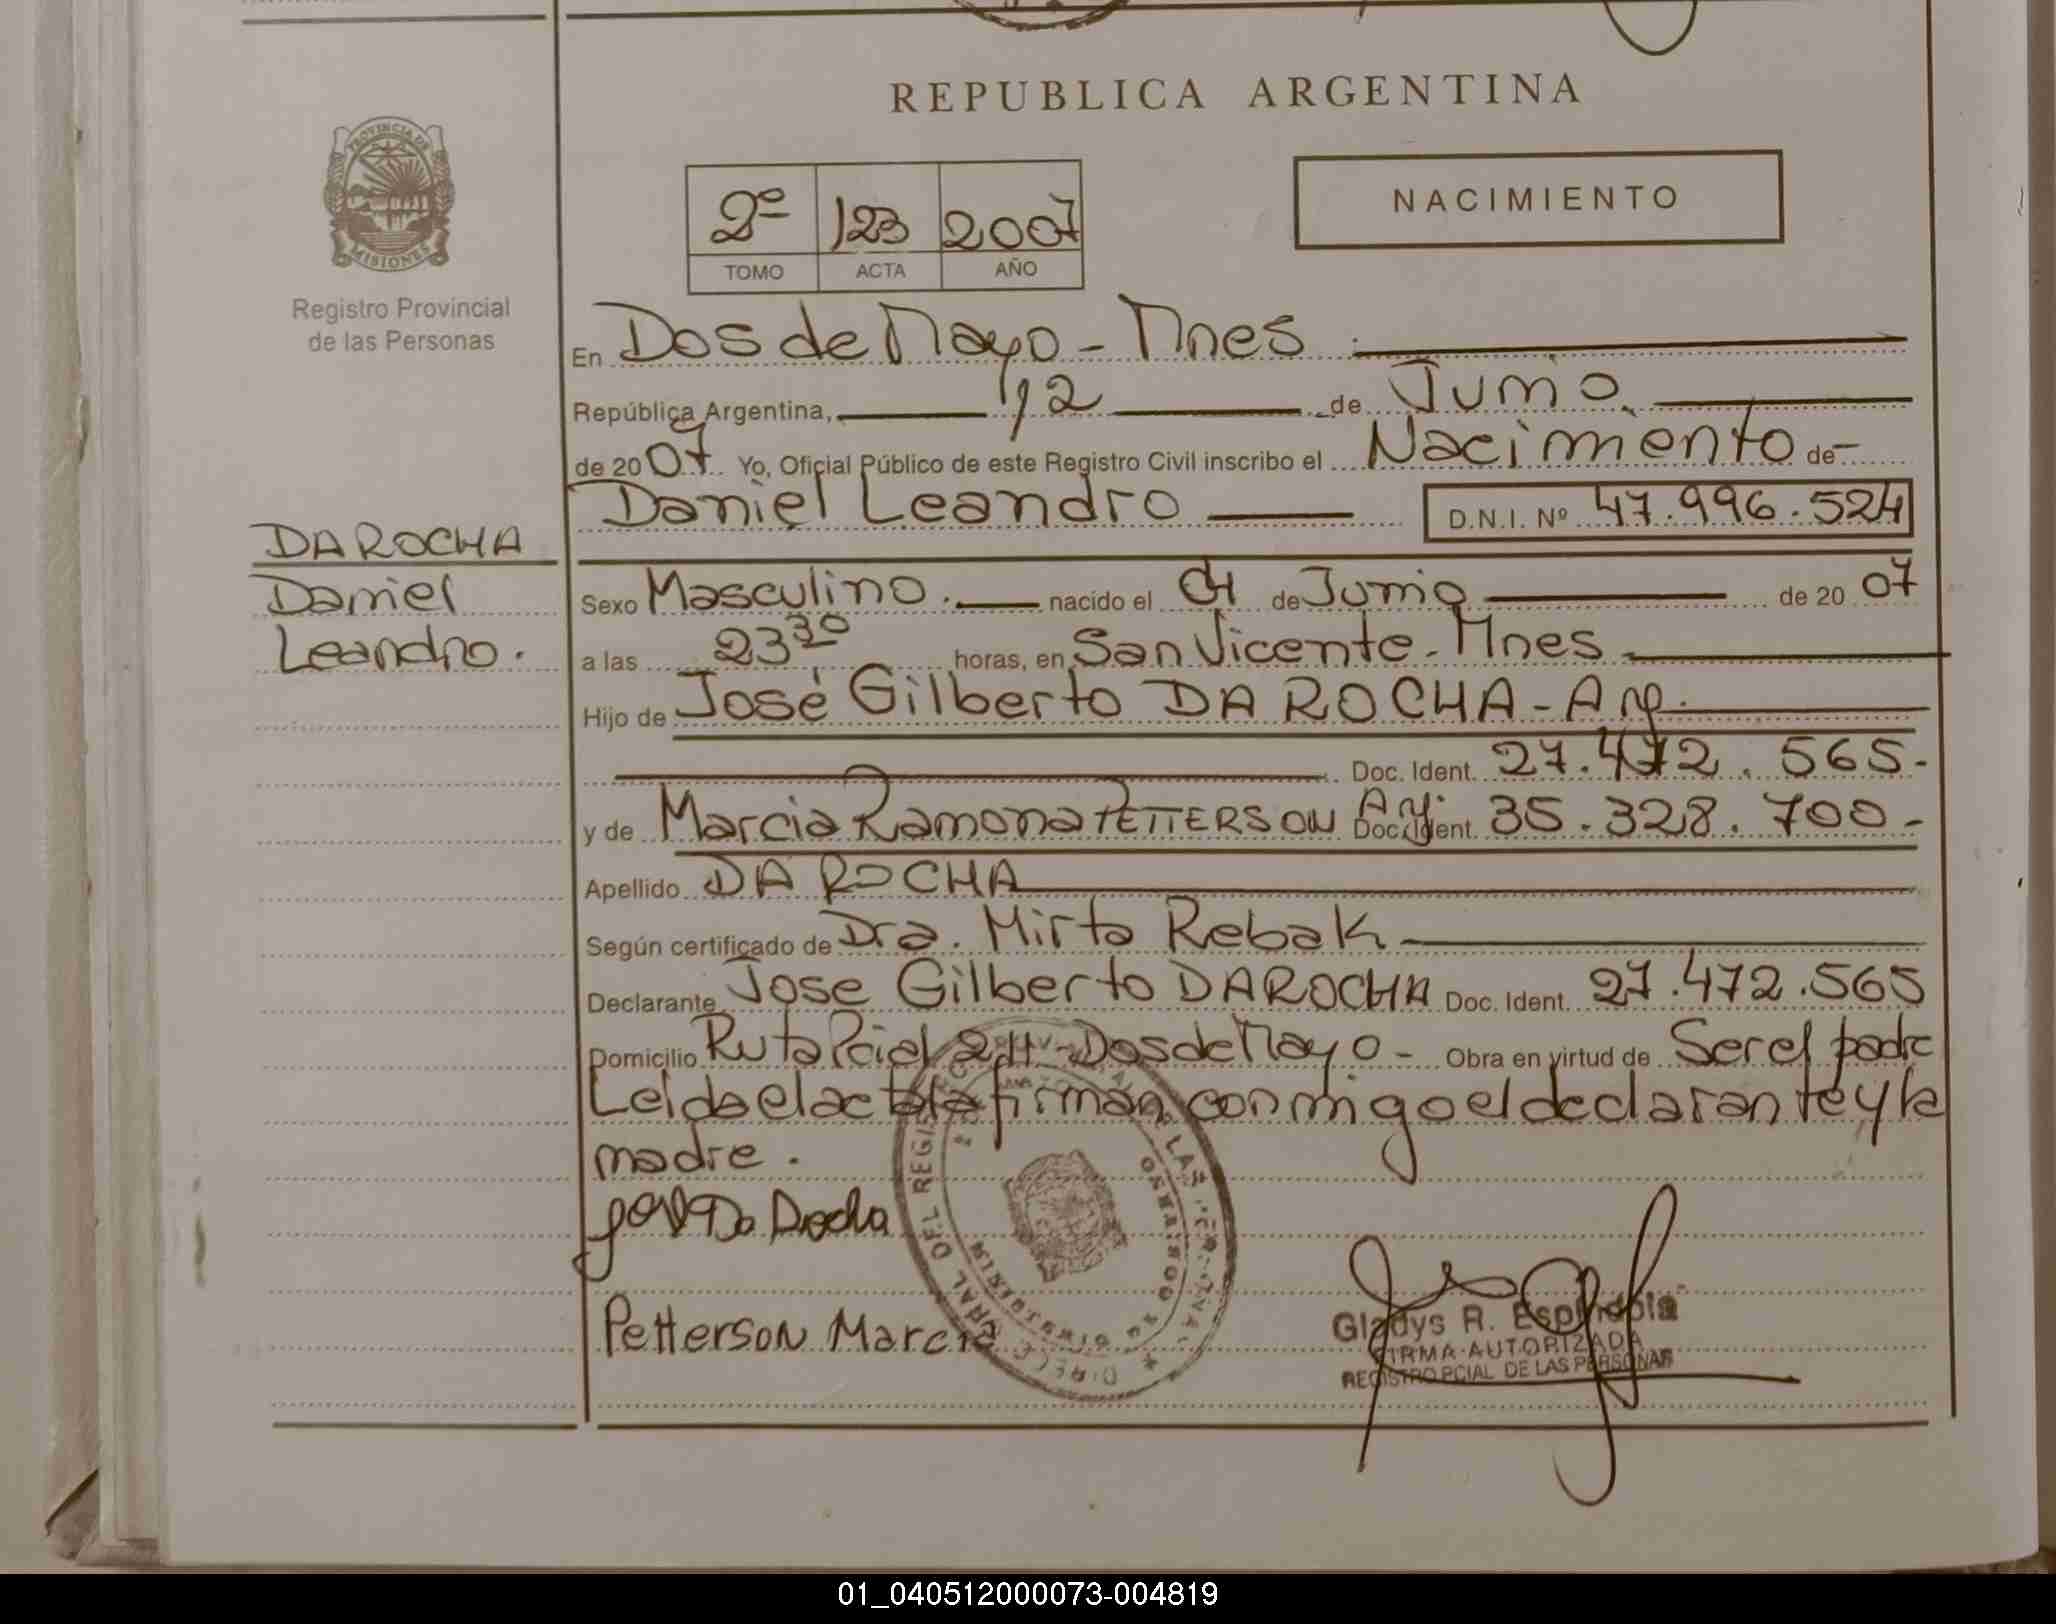 REPUBLICA ARGENTINA
PROVINCIA DE
MISIONES
Registro Provincial
de las Personas
2º 123 2007
TOMO ACTA AÑO
NACIMIENTO
En Dos de Mayo - Mnes
República Argentina, 12 de Junio
de 2007 Yo, Oficial Público de este Registro Civil inscribo el Nacimiento de
Daniel Leandro D.N.I. Nº 47.996.524
DA ROCHA
Daniel
Leandro.
Sexo Masculino. nacido el 04 de Junio de 2007
a las 23 30 horas, en San Vicente - Mnes
Hijo de José Gilberto DA ROCHA - Arg.
Doc. Ident. 27.472.565-
y de Marcia Ramona PETTERSON Arg. Doc. Ident. 35.328.700-
Apellido DA ROCHA
Según certificado de Dra. Mirta Rebak
Declarante Jose Gilberto DA ROCHA Doc. Ident. 27.472.565
Domicilio Ruta Pcial 24 - Dos de Mayo - Obra en virtud de Ser el padre
Leida el acta la firman conmigo el declarante y la
madre.
Da Rocha
Petterson Marcia
Gladys R. Espindola
FIRMA AUTORIZADA
REGISTRO PCIAL DE LAS PERSONAS
01_040512000073-004819